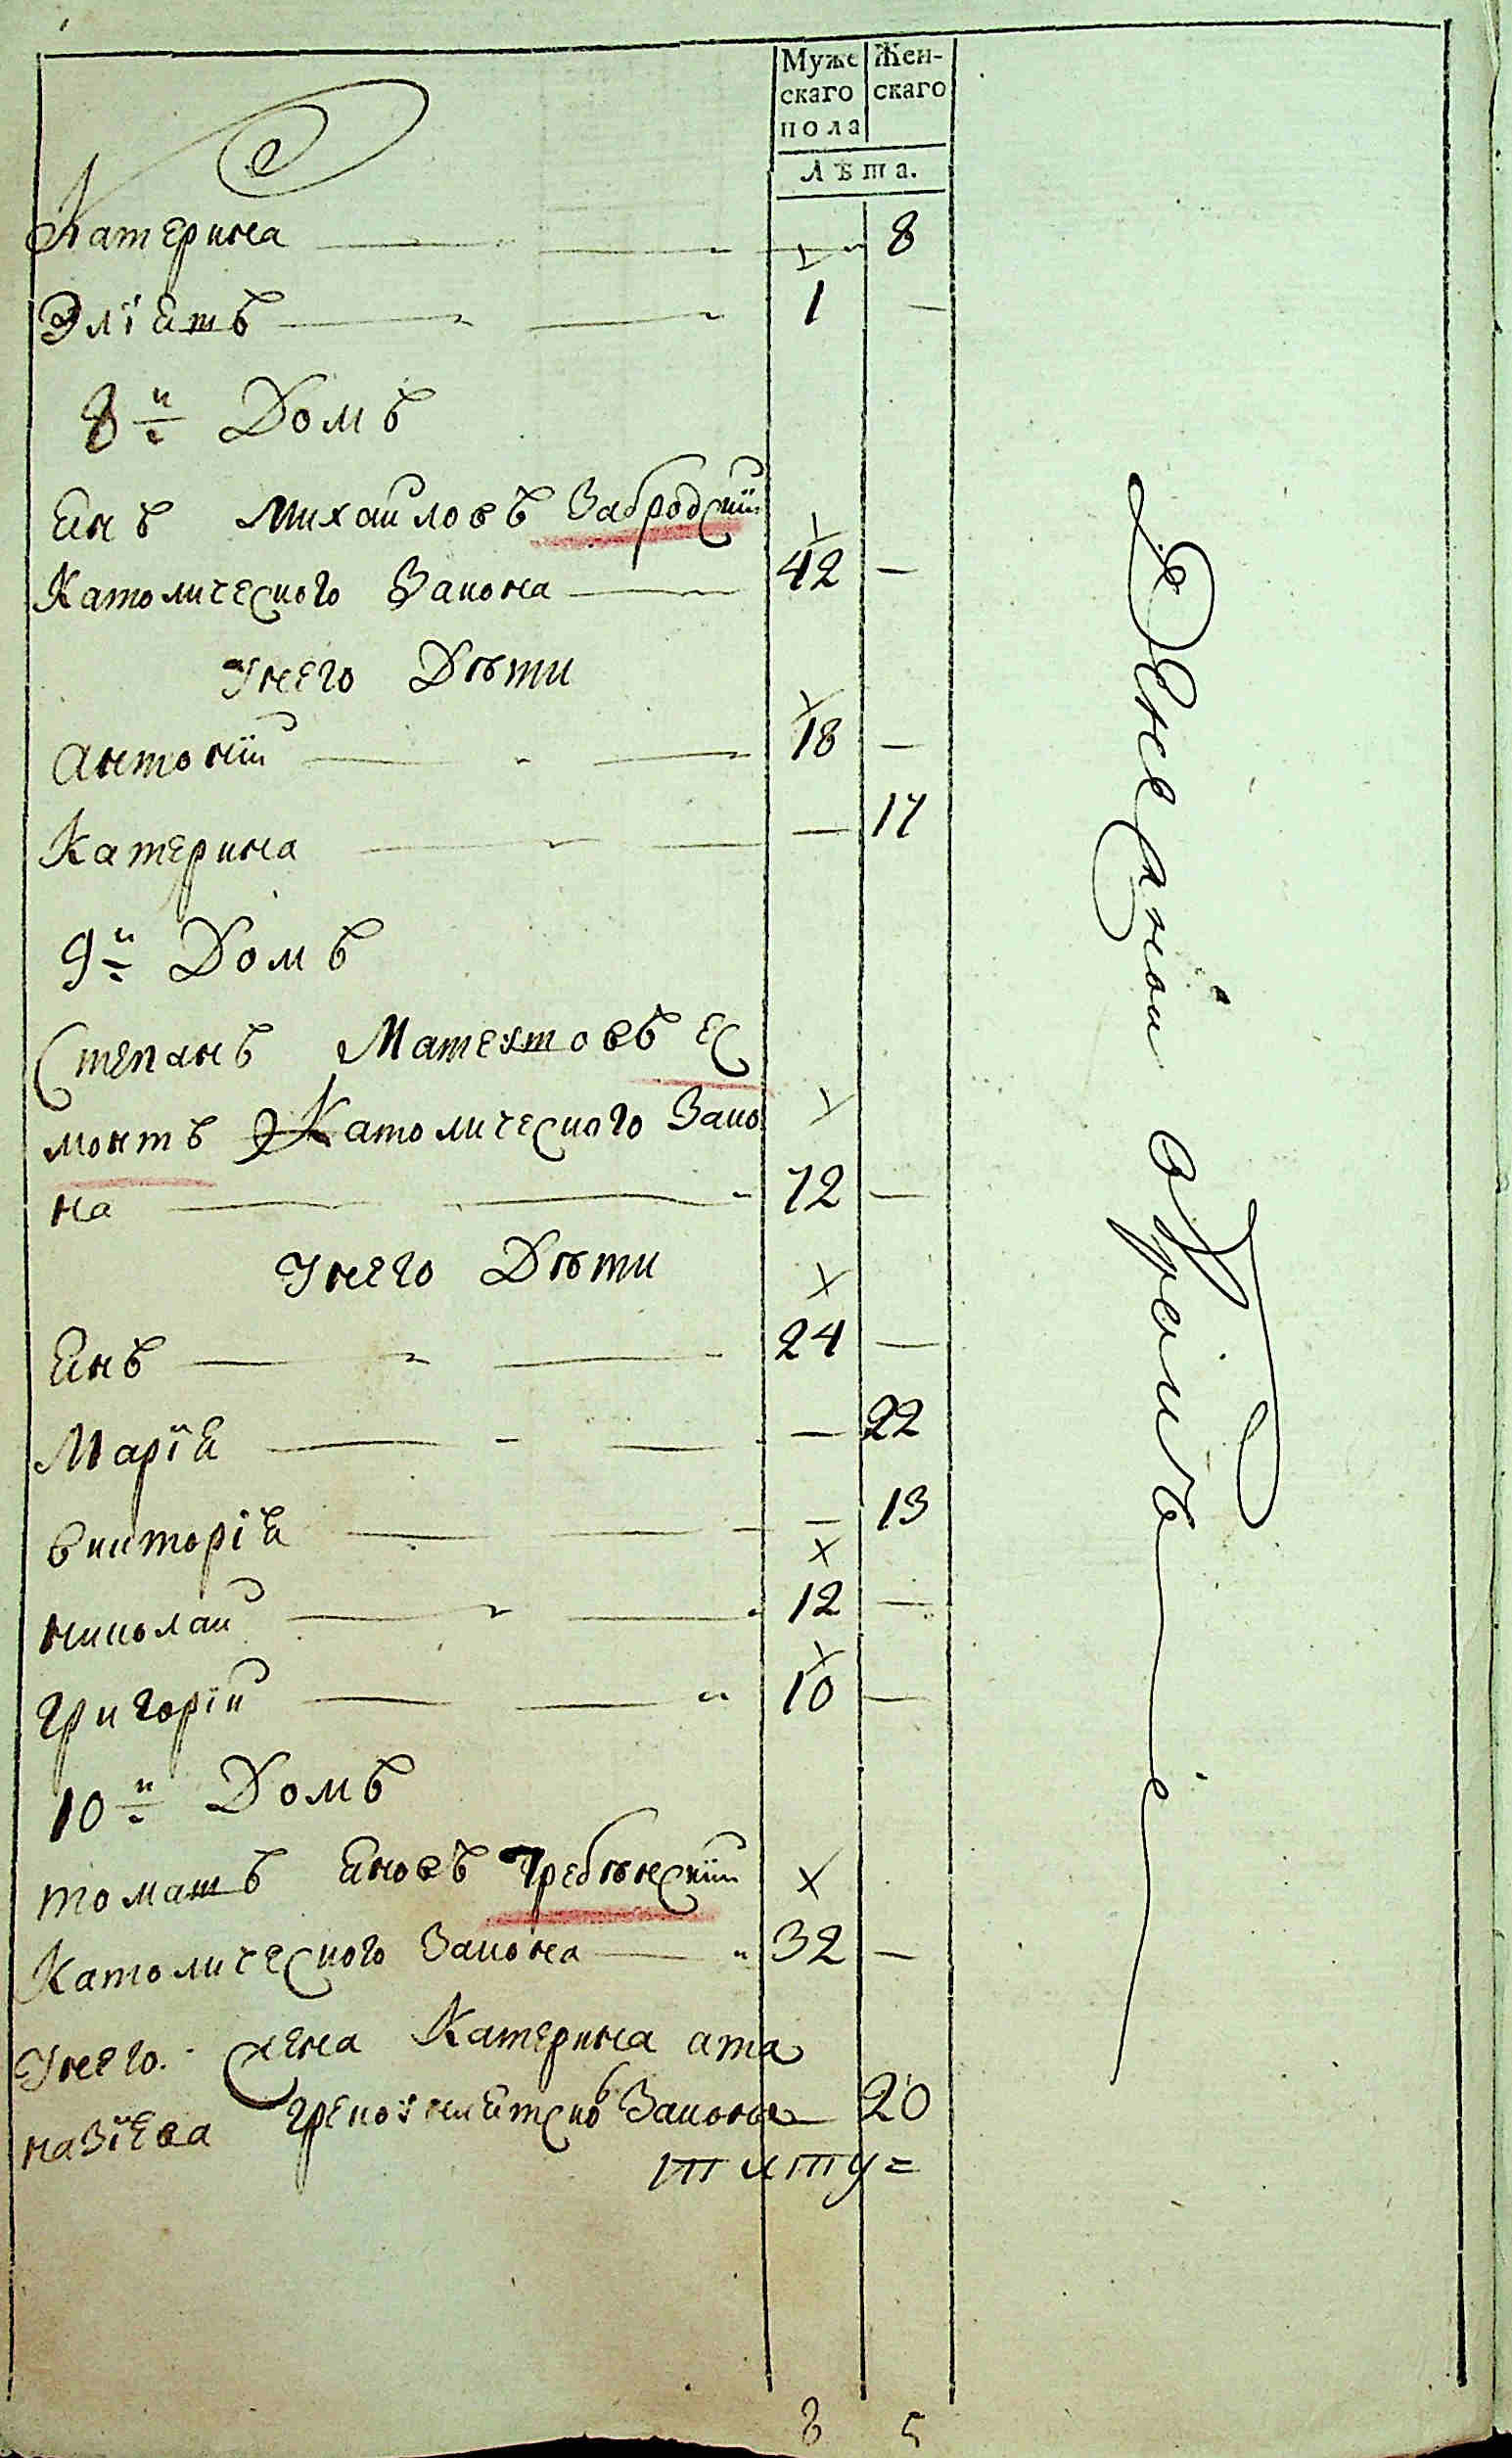 Муже Жен-
скаго скаго
пола
Лѣта.
Катерина 8
Элїашъ 1 —
8й Домъ
Янъ Михайловъ Забродскїй
Католического Закона 42 —
Унего Дѣти
Антонїй 18 —
Катерина — 17
9й Домъ
Степанъ Матеушовъ Ес
монтъ Католического Зако
на 72 —
Унего Дѣти
Янъ 24 —
Марїя — 22
Викторїя — 13
Николай 12 —
Григорїй 10 —
10й Домъ
Томашъ Яновъ Гребѣнскїй
Католического Закона 32 —
Унего жена Катерина Афа
назїева Грекоунїятского Закона 20
8 5